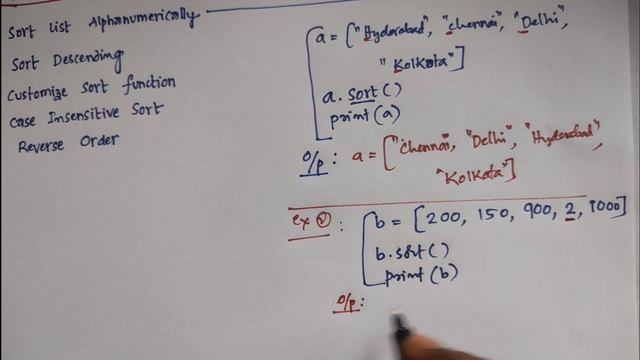 Sort List Alphanumerically
Sort Descending
Customize Sort function
Case Insensitive Sort
Reverse Order
a = ["Hyderabad", "chennai", "Delhi",
"Kolkata"]
a.sort()
print(a)
o/p : a = ["Chennai", "Delhi", "Hyderabad",
"Kolkata"]
ex ② : b = [200, 150, 900, 2, 1000]
b.sort()
print(b)
o/p :